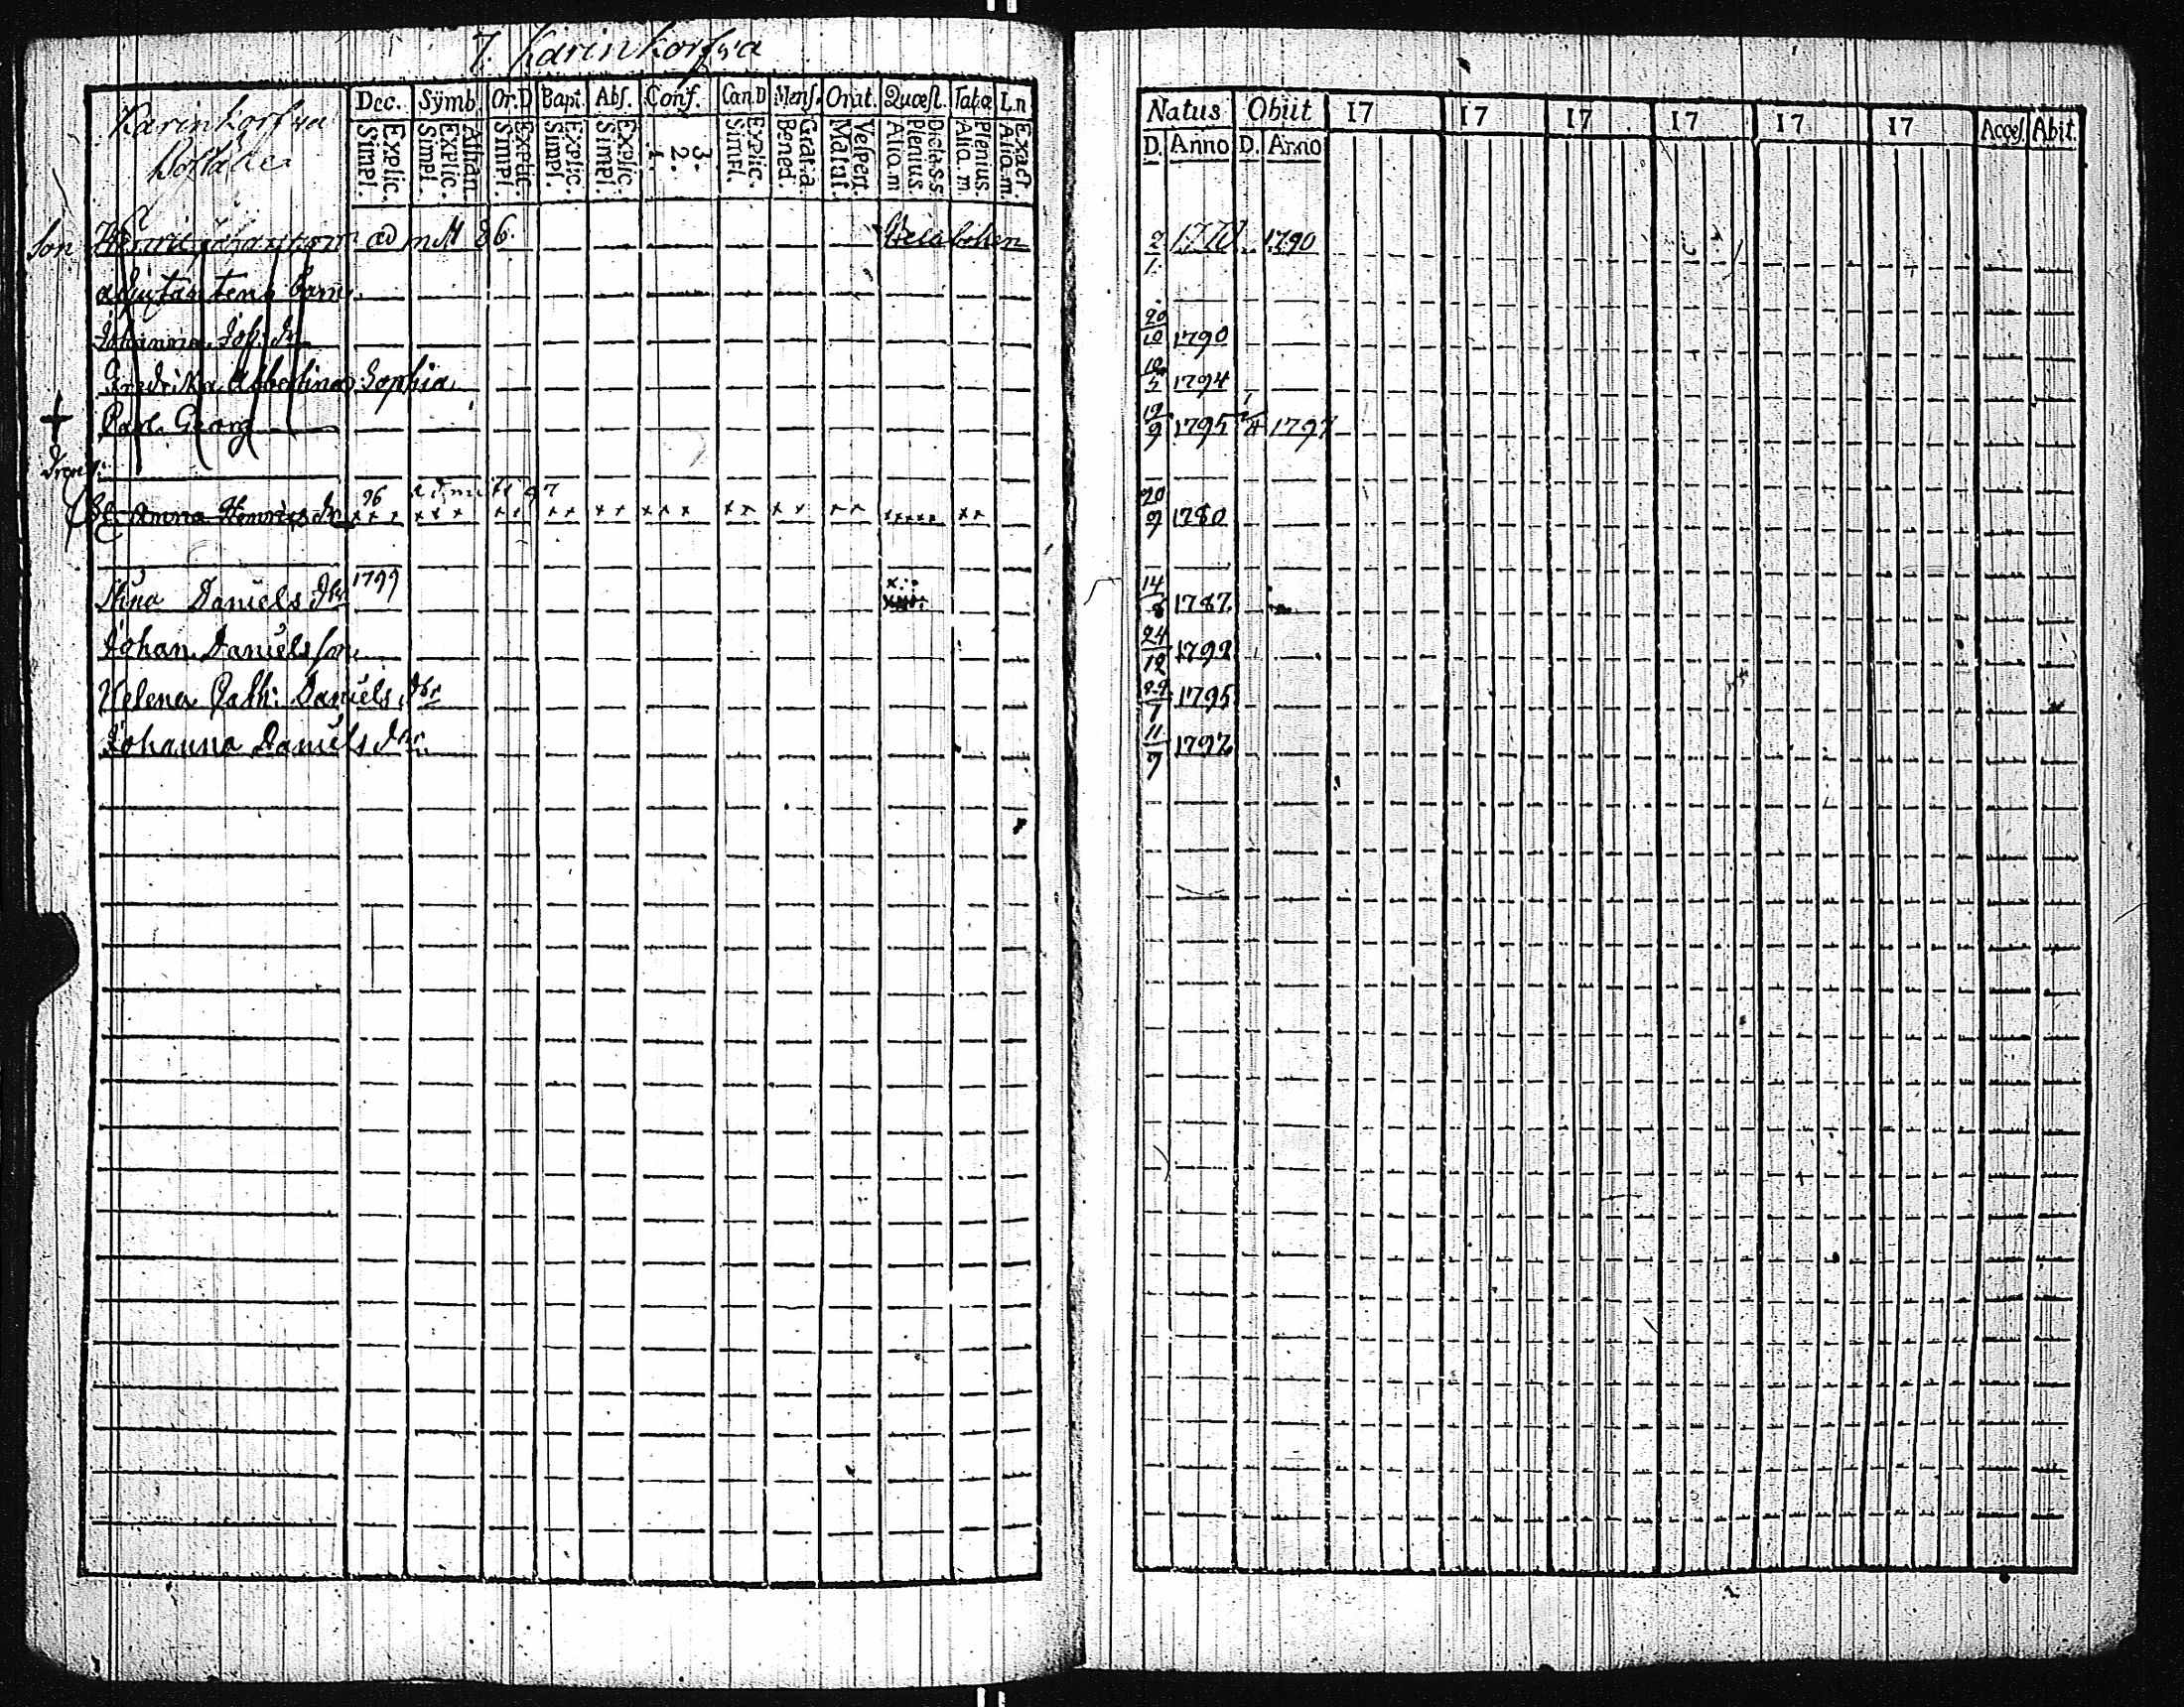 7. Karinkorfva
Karinkorfva
Boställe
Dec. Symb. Or.D Bapt. Abs. Conf. Can.D Mens. Orat. Quæst. Tab.æ L.n
Explic. Simpl. Athan. Explic. Simpl. Explic. Simpl. Explic. Simpl. Explic. Simpl. 3. 2. 1. Explic. Simpl. Grat.a Bened. Vespert. Matut. D:cta.s.s. Plenius. Alio.m Plenius. Alia.m. Exact. Alia.m.
Natus Obiit 17 17 17 17 17 17 Acces. Abit.
D. Anno D. Anno
Son Henric Johansson adm M 86. 2/1 1770 1790
adjutantens barn.
Johanna Joh: dr 20/10 1790
Fredrika Albertina Sophia 10/5 1794
+ Carl Georg 12/9 1795 1/4 1797
Anna Henrics dr 96 20/9 1780
Stina Daniels dr 1799 14/8 1787
Johan Danielsson 24/12 1792
Helena Cath: Daniels dr 1795
Johanna Daniels dr 11/7 1797